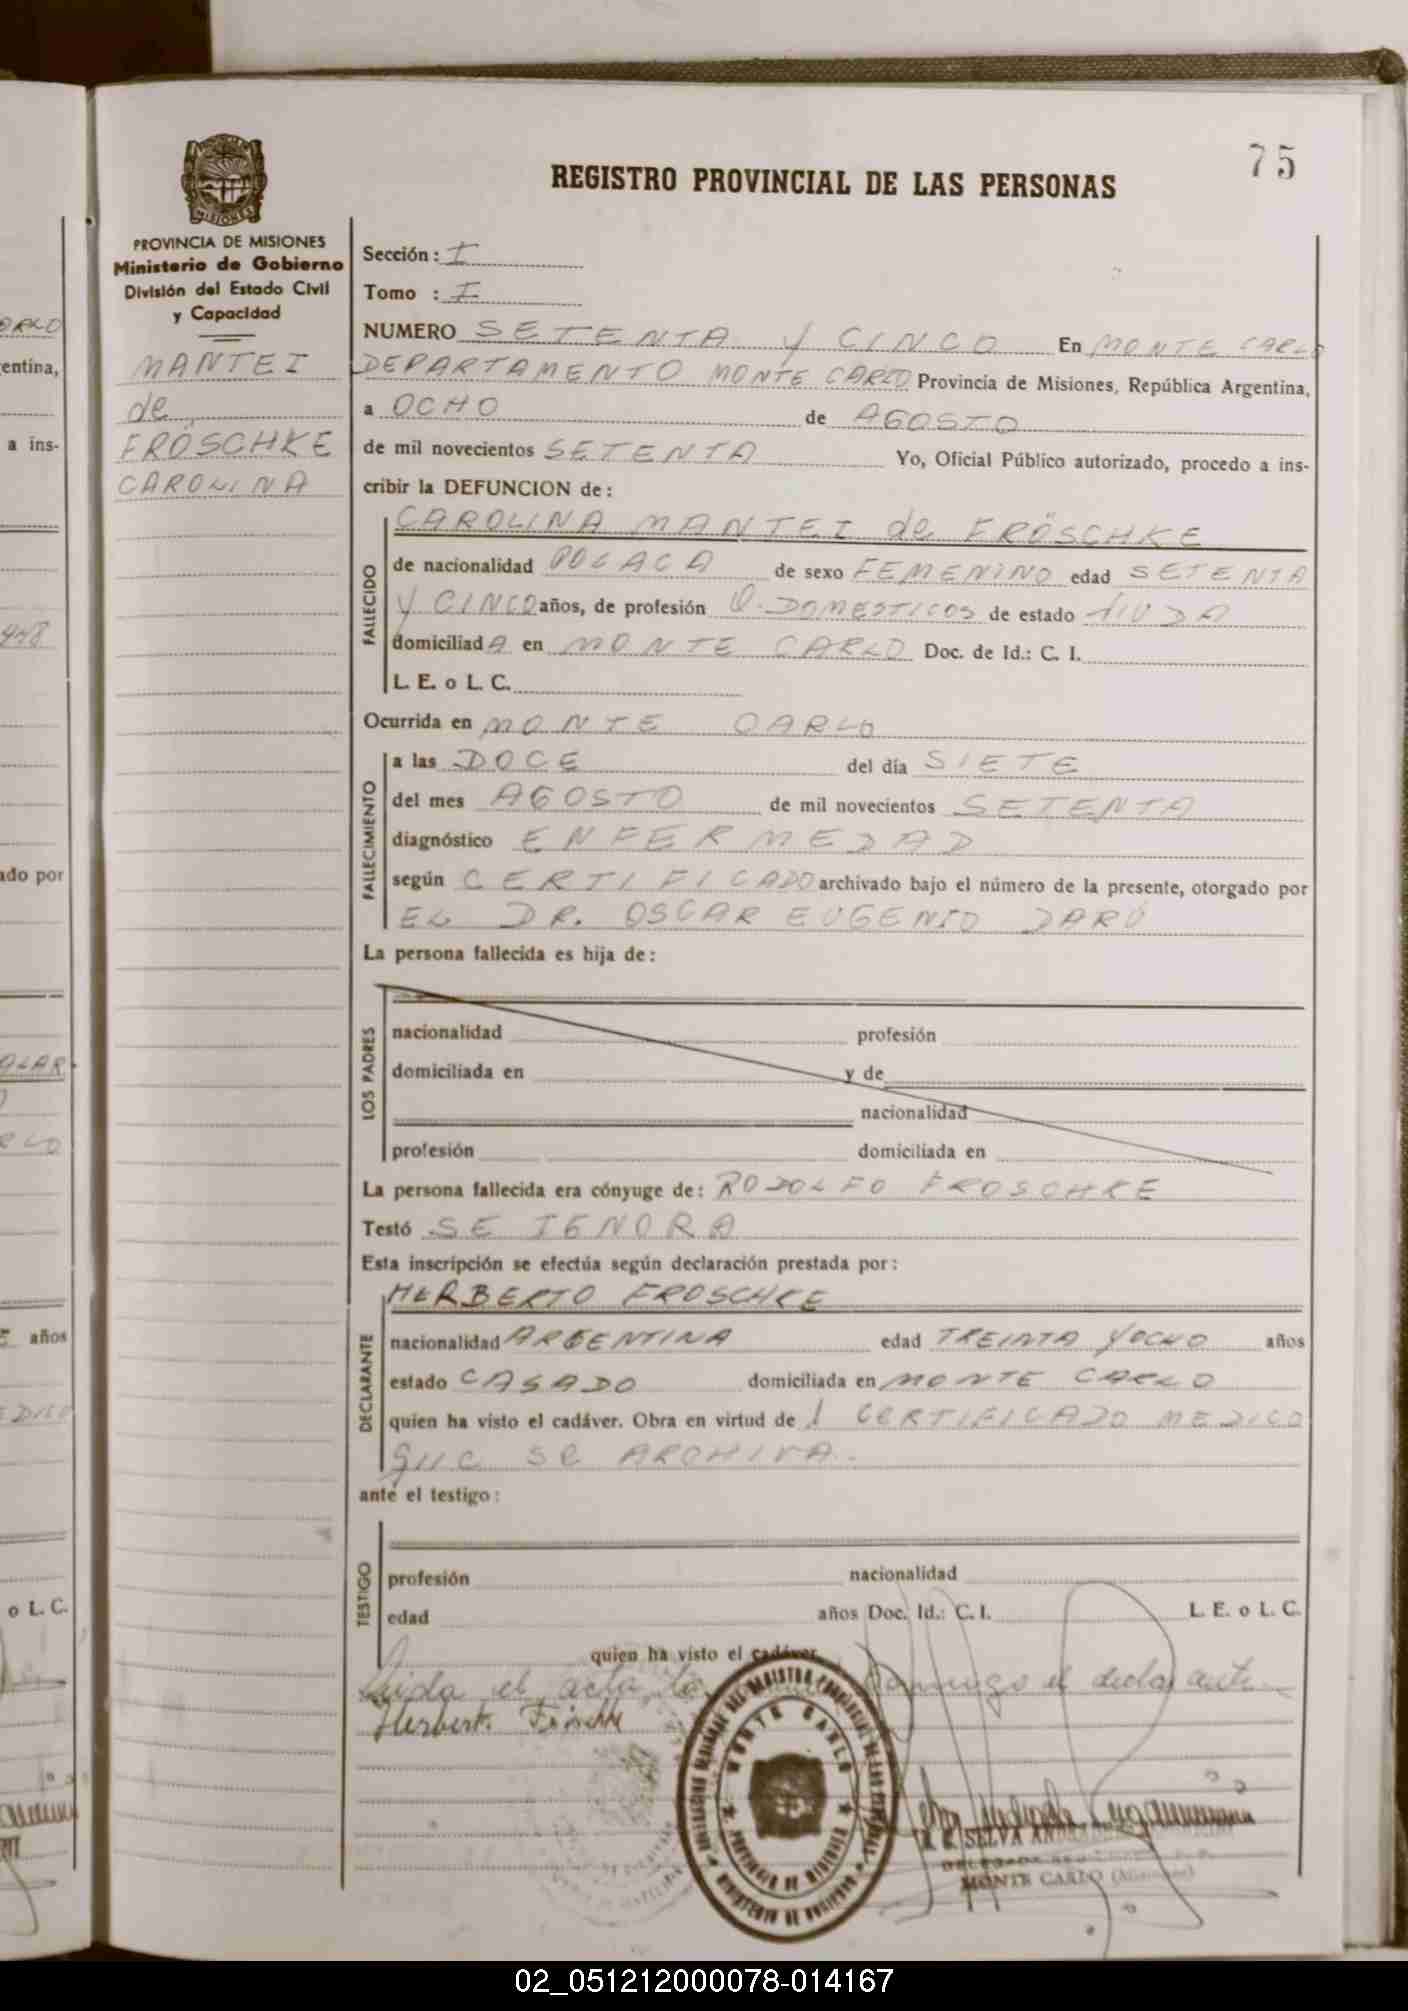 75
REGISTRO PROVINCIAL DE LAS PERSONAS
PROVINCIA DE MISIONES
Ministerio de Gobierno
División del Estado Civil
y Capacidad
MANTEI
de
FRÖSCHKE
CAROLINA
Sección: I
Tomo : I
NUMERO SETENTA Y CINCO En MONTE CARLO
DEPARTAMENTO MONTE CARLO Provincia de Misiones, República Argentina,
a OCHO de AGOSTO
de mil novecientos SETENTA Yo, Oficial Público autorizado, procedo a ins-
cribir la DEFUNCION de:
CAROLINA MANTEI de FRÖSCHKE
FALLECIDO
de nacionalidad POLACA de sexo FEMENINO edad SETENTA
Y CINCO años, de profesión Q. DOMESTICOS de estado VIUDA
domiciliadA en MONTE CARLO Doc. de Id.: C. I.
L. E. o L. C.
Ocurrida en MONTE CARLO
FALLECIMIENTO
a las DOCE del día SIETE
del mes AGOSTO de mil novecientos SETENTA
diagnóstico ENFERMEDAD
según CERTIFICADO archivado bajo el número de la presente, otorgado por
EL DR. OSCAR EUGENIO DARÚ
La persona fallecida es hija de:
LOS PADRES
nacionalidad profesión
domiciliada en y de
nacionalidad
profesión domiciliada en
La persona fallecida era cónyuge de: RODOLFO FROSCHKE
Testó SE IGNORA
Esta inscripción se efectúa según declaración prestada por:
HERBERTO FROSCHKE
DECLARANTE
nacionalidad ARGENTINA edad TREINTA Y OCHO años
estado CASADO domiciliada en MONTE CARLO
quien ha visto el cadáver. Obra en virtud de 1 CERTIFICADO MEDICO
que se ARCHIVA.
ante el testigo:
TESTIGO
profesión nacionalidad
edad años Doc. Id.: C. I. L. E. o L. C.
quien ha visto el cadáver
Leida el acta, la conmigo el declarante
MONTE CARLO
PROVINCIA DE MISIONES
MINISTERIO DE GOBIERNO
SELVA
MONTE CARLO (Misiones)
ORLO
entina,
a ins-
948
ado por
OLAR
RLO
años
EDICO
o L. C.
02_051212000078-014167